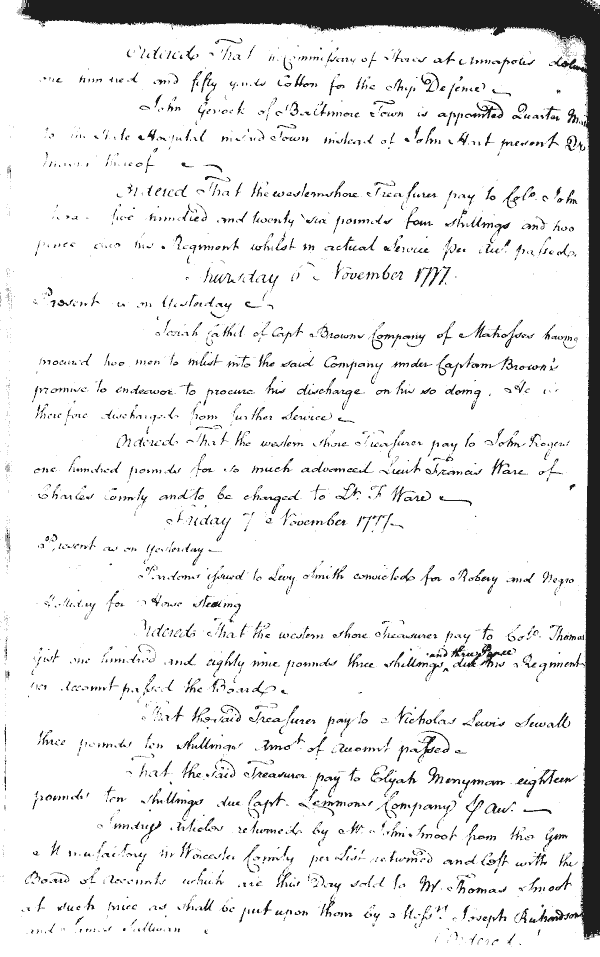 Ordered That the Commissary of Stores at Annapolis deliver
one hundred and fifty yards Cotton for the Ship Defence
John Gerock of Baltimore Town is appointed Quarter
to the State Hospital in said Town instead of John Hart present
thereof
Ordered That the western shore Treasurer pay to Colo. John
five hundred and twenty six pounds four shillings and two
pence due his Regiment whilst in actual Service per Acct. passed
Thursday 6th November 1777.
Present as on Yesterday
Josiah Cathel of Capt Browns Company of Matrosses having
procured two men to inlist into the said Company under Captain Brown's
promise to endeavor to procure his discharge on his so doing. He is
therefore discharged from further Service
Ordered That the western shore Treasurer pay to John Rogers
one hundred pounds for so much advanced Lieut Francis Ware of
Charles County and to be charged to Lt. F Ware
Friday 7 November 1777
Present as on Yesterday
Pardons issued to Levy Smith convicted for Robery and Negro
for Horse stealing
Ordered That the western shore Treasurer pay to Colo. Thomas
Gist one hundred and eighty nine pounds three shillings and three Pence due his Regiment
per Account passed the Board
That the said Treasurer pay to Nicholas Lewis Sewall
three pounds ten shillings Amot. of Account passed
That the said Treasurer pay to Elijah Merryman eighteen
pounds ten shillings due Capt. Lemmons Company p Acct.
Sundry Articles returned by Mr. John Smoot from the Gun
Manufactory in Worcester County per List returned and left with the
Board of Accounts which are this Day sold to Mr. Thomas Smoot
at such price as shall be put upon them by Messrs. Joseph Richardson
and James Sullivan
Ordered